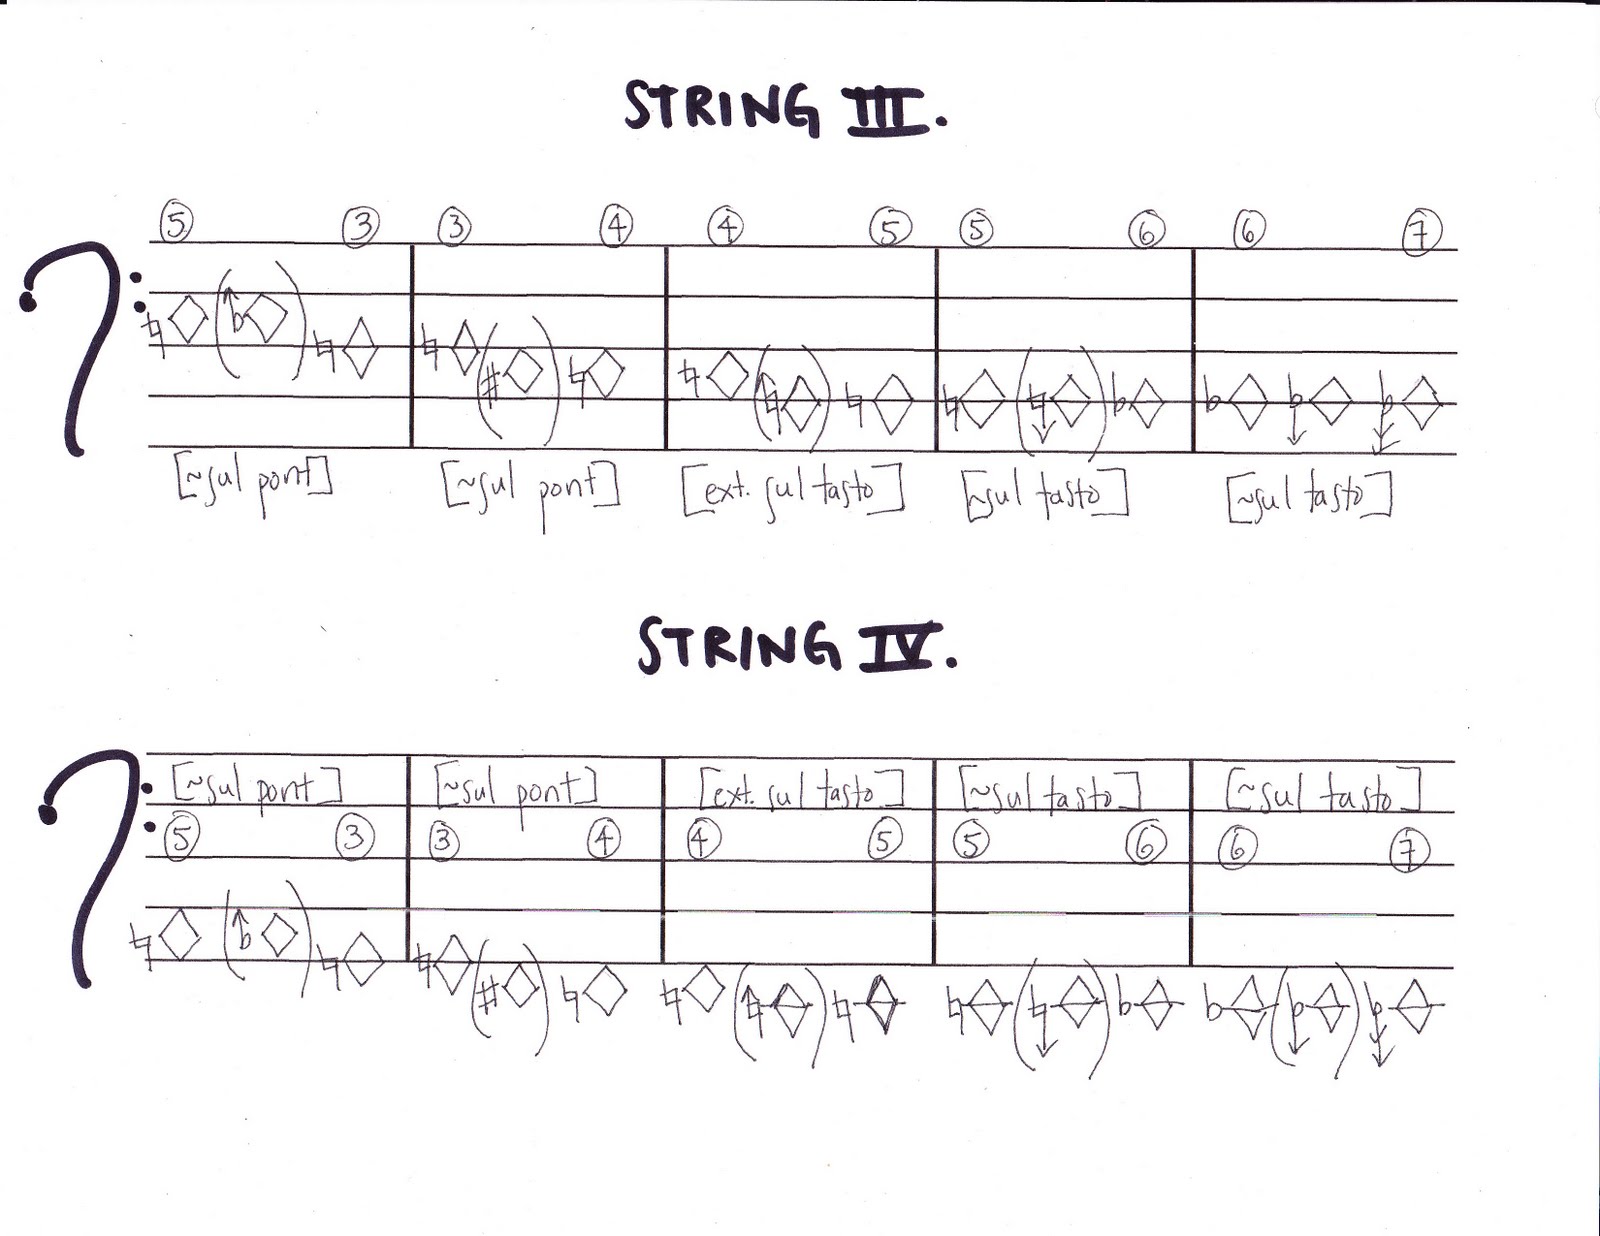 STRING III.
5 3 3 4 4 5 5 6 6 7
[~sul pont] [~sul pont] [ext. sul tasto] [~sul tasto] [~sul tasto]
STRING IV.
[~sul pont] [~sul pont] [ext. sul tasto] [~sul tasto] [~sul tasto]
5 3 3 4 4 5 5 6 6 7